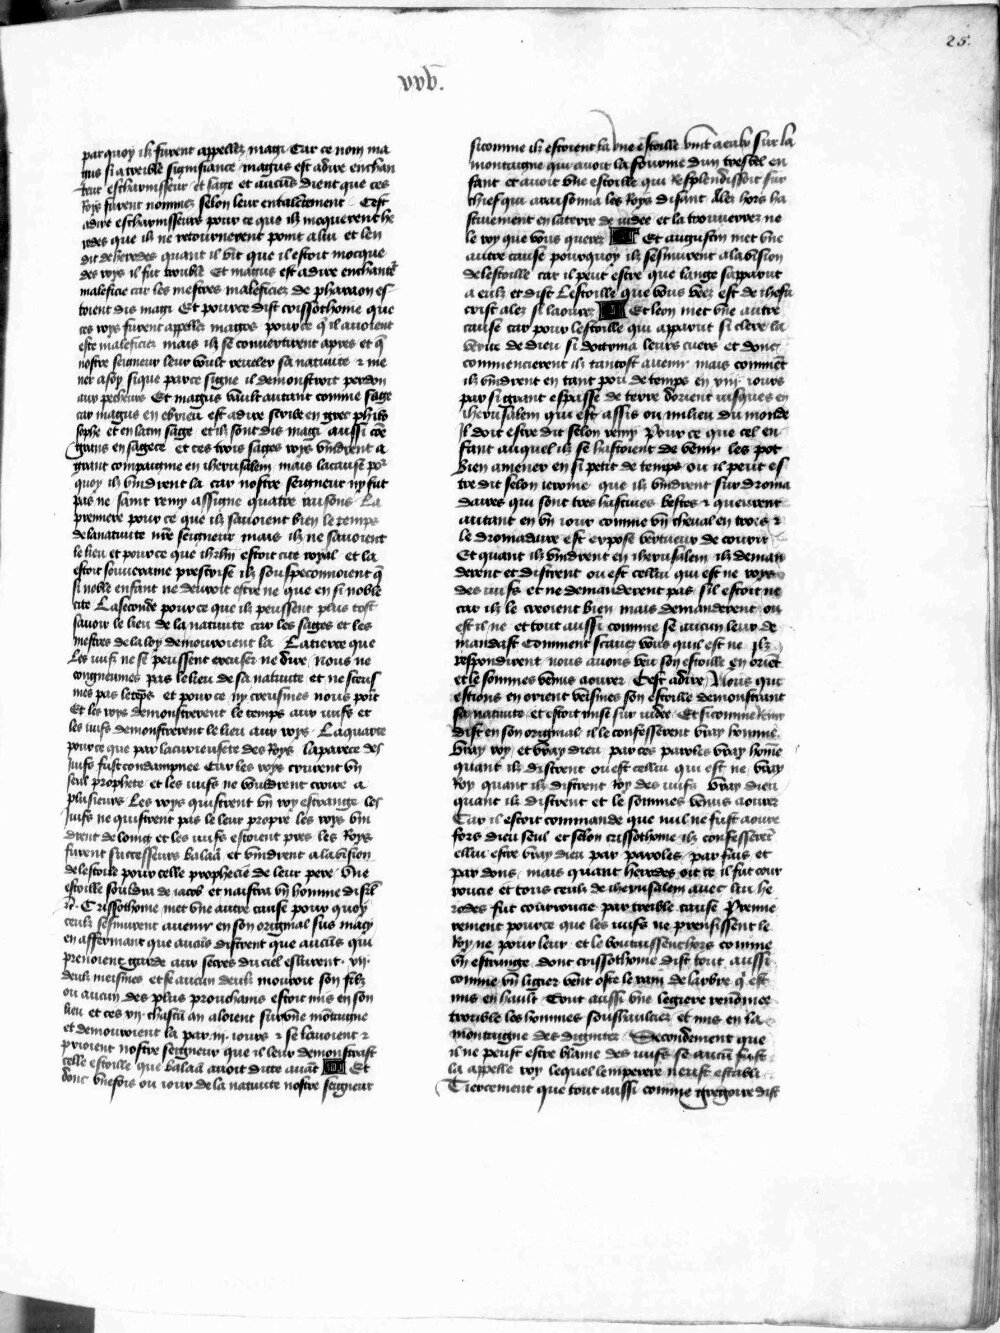 25.
xxv.
par quoy ilz furent appellez magi Car ce nom ma
gus si a treible signifiance magus est adire enchan
teur escharnisseur et sage et aucuns dient que ces
Roys furent nommez selon leur entalement Cest
adire escharnisseurs pour ce que ilz mocquerent he
rodes que ilz ne retournerent point a lui et len
dit de herodes quant il vit que il estoit mocque
des roys il fut trouble Et magus est adire enchanteur
malefice car les mestres malefices de pharaon es
toient dis magi Et pource dist crissothome que
ces roys furent appellez magos pource q̃ il auoient
este malefices mais ilz se conuertirent apres et q̃
nostre seigneur leur voult reueler sa natiuite et me
ner a soy si que par ce signe il demonstroit pardon
aux pecheurs Et magus vault autant comme sage
car magus en ebrieu est adire scribe en grec philo
sophe et en latin sage et ilz sont dis magi aussi cõe
grans en sagece et ces trois sages roys vindrent a
grant compaignie en iherusalem mais la cause por
quoy ilz vindrent la car nostre seigneur ny fut
pas ne saint remy assigne quatre raisons La
premiere pour ce que ilz sauoient bien le temps
de la natiuite nr̃e seigneur mais ilz ne sauoient
le lieu et pource que ihrlm̃ estoit cite royal et la
estoit souueraine prestrise ilz souspeconnoient q̃
si noble enfant ne deuroit estre ne que en si noble
cite La seconde pour ce que ilz peussent plus tost
sauoir le lieu de la natiuite car les sages et les
mestres de la loy demouroient la La tierce que
Les iuifz ne se peussent excuser ne dire nous ne
congneumes pas le lieu de sa natiuite et ne sceus
mes pas le tẽps et pource ny creusmes nous point
Et les roys demonstrerent le temps aux iuifs et
les iuifs demonstrerent le lieu aux roys La quarte
pour ce que par la curieusete des Roys la parece des
Juifs fust condampnee Car les roys crurent vn
seul prophete et les iuifs ne voudrent croire a
plusieurs Les roys quistrent vn roy estrange les
Juifs ne quistrent pas le leur propre les roys vin
drent de loing et les iuifs estoient pres les Roys
furent successeurs balaã et vindrent a la vision
de lestoile pour celle prophecie de leur pere Vne
estoille souldra de iacob et naistra vn homme disrl̃
Crissothome met vne autre cause pour quoy
ceulz sesmurent auenir en son original sus macy
en affermant que aucũs distrent que aucũs qui
prenoient garde aux secres du ciel eslurent .xij.
deulz meismes et se aucun deulz mouroit son filz
ou aucun des plus prouchains estoit mis en son
lieu et ces xij. chascũ an aloient sur vne motaigne
et demouroient la par .iij. iours & se lauoient &
prioient nostre seigneur que il leur demonstrast
celle estoille que balaã auoit dicte auãt Et
donc vnefois ou iour de la natiuite nostre seigneur
sicomme ilz estoient la vne estoille vint a eulx sur la
montaigne qui auoit la fourme dun tresbel en
fant et auoit vne estoille qui Resplendissoit sur
chief qui araisonna les Roys disant Alez hors ha
stiuement en la terre de iudee et la trouuerrez ne
le roy que vous querez Et augustin met vne
autre cause pourquoy ilz sesmurent a la vision
de lestoille car il peut estre que lange sapparut
a eulz et dist Lestoille que vous veez est de ihesu
crist alez si laourez Et leon met vne autre
cause car pour lestoille qui apparut si clere la
vertu de dieu si doctrina leurs cuers et donc
commencierent ilz tantost auenir mais commẽt
ilz vindrent en tant pou de temps en xiij iours
par si grant espasse de terre dorient iusques en
iherusalem qui est assis ou milieu du monde
Il doit estre dit selon remy Pour ce que cel en
fant auquel ilz se hastoient de venir les pot
bien amener en si petit de temps ou il peut es
tre dit selon ierome que ilz vindrent sur droma
daires qui sont tres hastiues bestes & queurent
autant en vn iour comme vn cheual en trois &
le dromadaire est expose vertueux de courir
Et quant ilz vindrent en iherusalem ilz deman
derent et distrent ou est cellui qui est ne roys
des iuifs et ne demanderent pas sil estoit ne
car ilz le creoient bien mais demanderent ou
est il ne et tout aussi comme se aucun leur de
mandast Comment scauez vous quil est ne ilz
respondirent nous auons veu son estoille en oriẽt
et le sommes venus aourer Cest adire Nous qui
estions en orient veismes son estoille demonstrant
sa natiuite et estoit mise sur iudee Et sicomme remy
dist en son original il le confesserent vray homme
vray roy et vray dieu par ces paroles vray hom̃e
quant ilz distrent ou est cellui qui est ne vray
Roy quant ilz distrent Roy des iuifs vray dieu
quant ilz distrent et le sommes venus aourer
Car il estoit commande que nul ne fust aoure
fors dieu seul et selon crissothome ilz confesserẽt
cellui estre vray dieu par paroles par fais et
par dons mais quant herodes oit ce il fut cour
roucie et tous ceulz de iherusalem auec lui he
rodes fut courroucie par treible cause Premie
rement pource que les iuifs ne prensissent le
Roy ne pour leur et le boutaissent hors comme
vn estrange dont crissothome dist tout aussi
comme vn ligier vent oste le raim de larbre q̃ est
mis en hault Tout aussi vne legiere renõmee
trouble les hommes soushaulciez et mis en la
montaigne des dignitez Secondement que
il ne peust estre blame des iuifs se aucũ fust
la appelle roy lequel lempereur neust establi
Tiercement que tout aussi comme gregoire dist